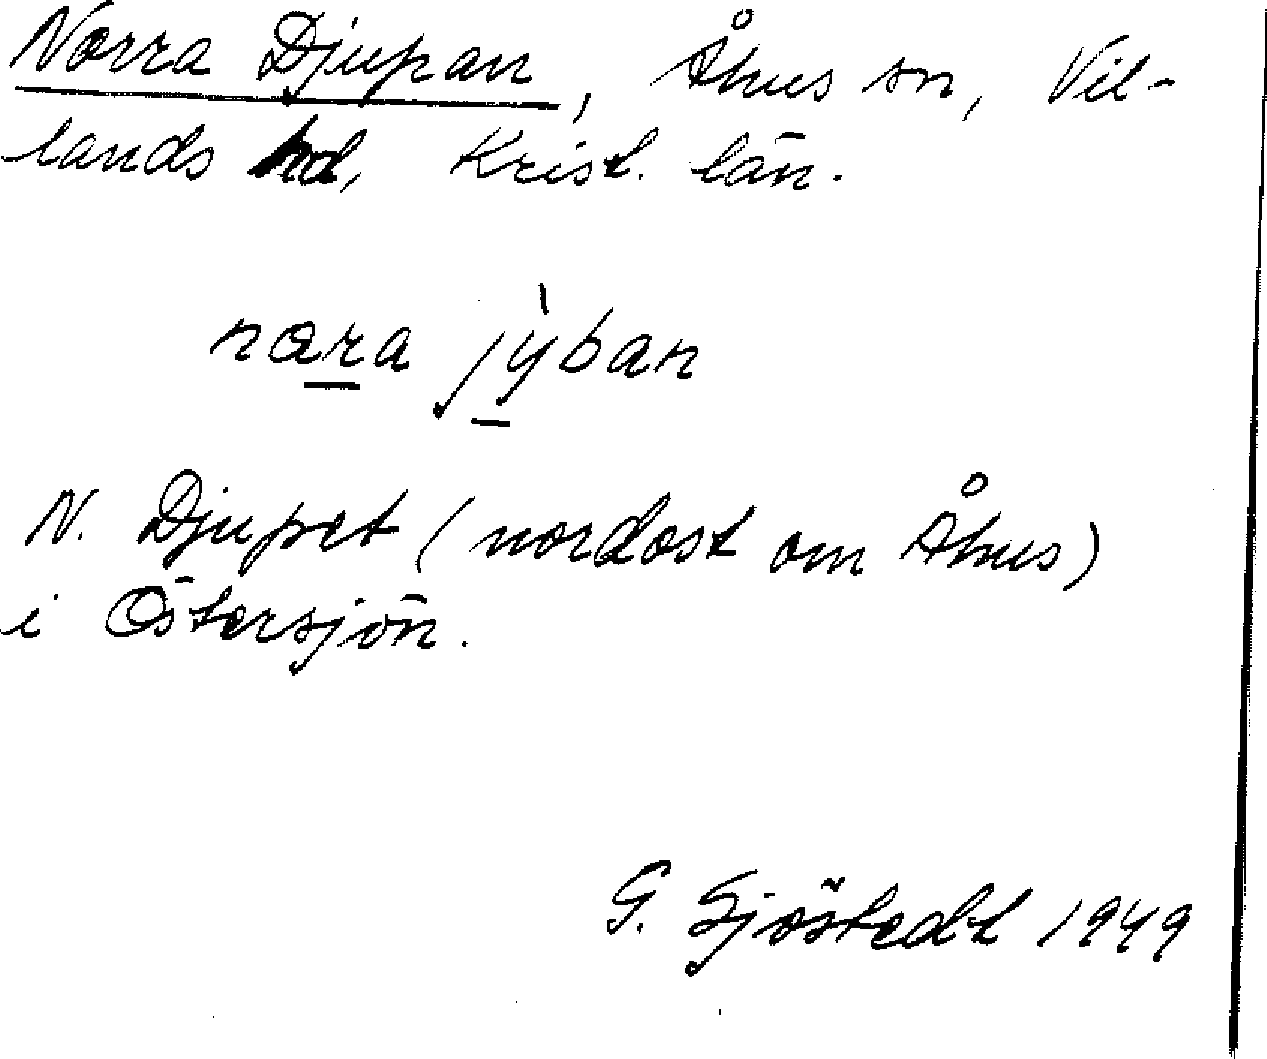 Norra Djupan, Åhus sn, Vil-
lands hd, Krist. län.
nara jỳban
N. Djupet (nordost om Åhus)
i Östersjön.
G. Sjöstedt 1949